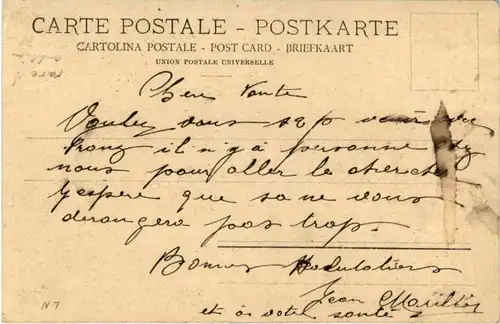 CARTE POSTALE - POSTKARTE
CARTOLINA POSTALE - POST CARD - BRIEFKAART
UNION POSTALE UNIVERSELLE
Chere Tante
Voulez vous s v p venir
il n'y a personne
nous pour aller le cherche
J'espere que sa ne vous
derangera pas trop.
Bonnes Salutations
Jean
et à votre santé
N 7